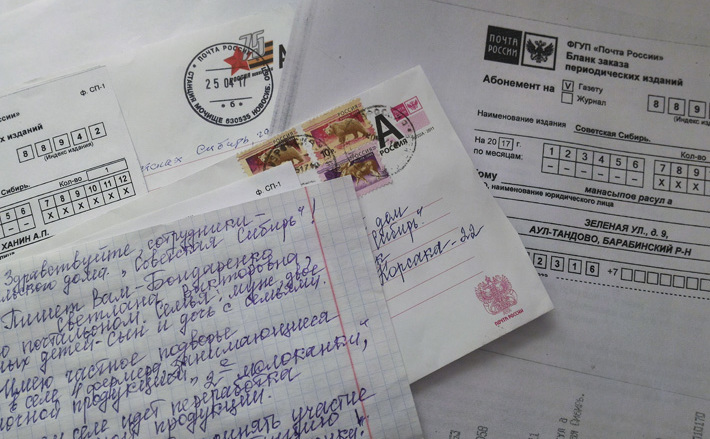 Ф. СП-1
изданий
8 8 9 4 2
(Индекс издания)
Сибирь.
Кол-во
1
5 6 7 8 9 10 11 12
X X X X X X X X
ХАНИН А.П.
ПОЧТА РОССИИ
25 04 17
СТАНЦИЯ МОЧИЩЕ 630535 НОВОСИБ. ОБЛ
75
А
Сибирь
Ф. СП-1
Кол-во
А
РОССИЯ
дом
Сибирь"
Корсака-22
ПОЧТА РОССИИ
Здравствуйте, сотрудники
дома „Советская Сибирь"!
Пишет Вам - Бондаренко
Светлана Викторовна,
Семья: муж, двое
детей - сын и дочь с семьями.
Имею частное подворье
в селе 4 фермера, занимающиеся
молочной продукцией, 2е „молоканки",
селе идет переработка
продукции.
принять участие
ПОЧТА РОССИИ
ФГУП «Почта России»
Бланк заказа
периодических изданий
Абонемент на
V Газету
Журнал
8 8 9
(Индекс
Наименование издания
Советская Сибирь.
На 20 17 г.
по месяцам:
Кол-во
1 2 3 4 5 6 7 8
X X
Кому
манасыпое расул а
наименование юридического лица
ЗЕЛЕНАЯ УЛ., д. 9,
АУЛ-ТАНДОВО, БАРАБИНСКИЙ Р-Н
2 3 1 6
+7